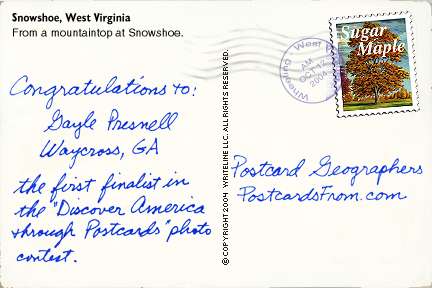 Snowshoe, West Virginia
From a mountaintop at Snowshoe.
Congratulations to:
Gayle Presnell
Waycross, GA
the first finalist in
the "Discover America
through Postcards" photo
contest.
© COPYRIGHT 2004 WRITELINE LLC. ALL RIGHTS RESERVED.
Wheeling West
AM
OCT
2004
Sugar
Maple
Postcard Geographers
PostcardsFrom.com